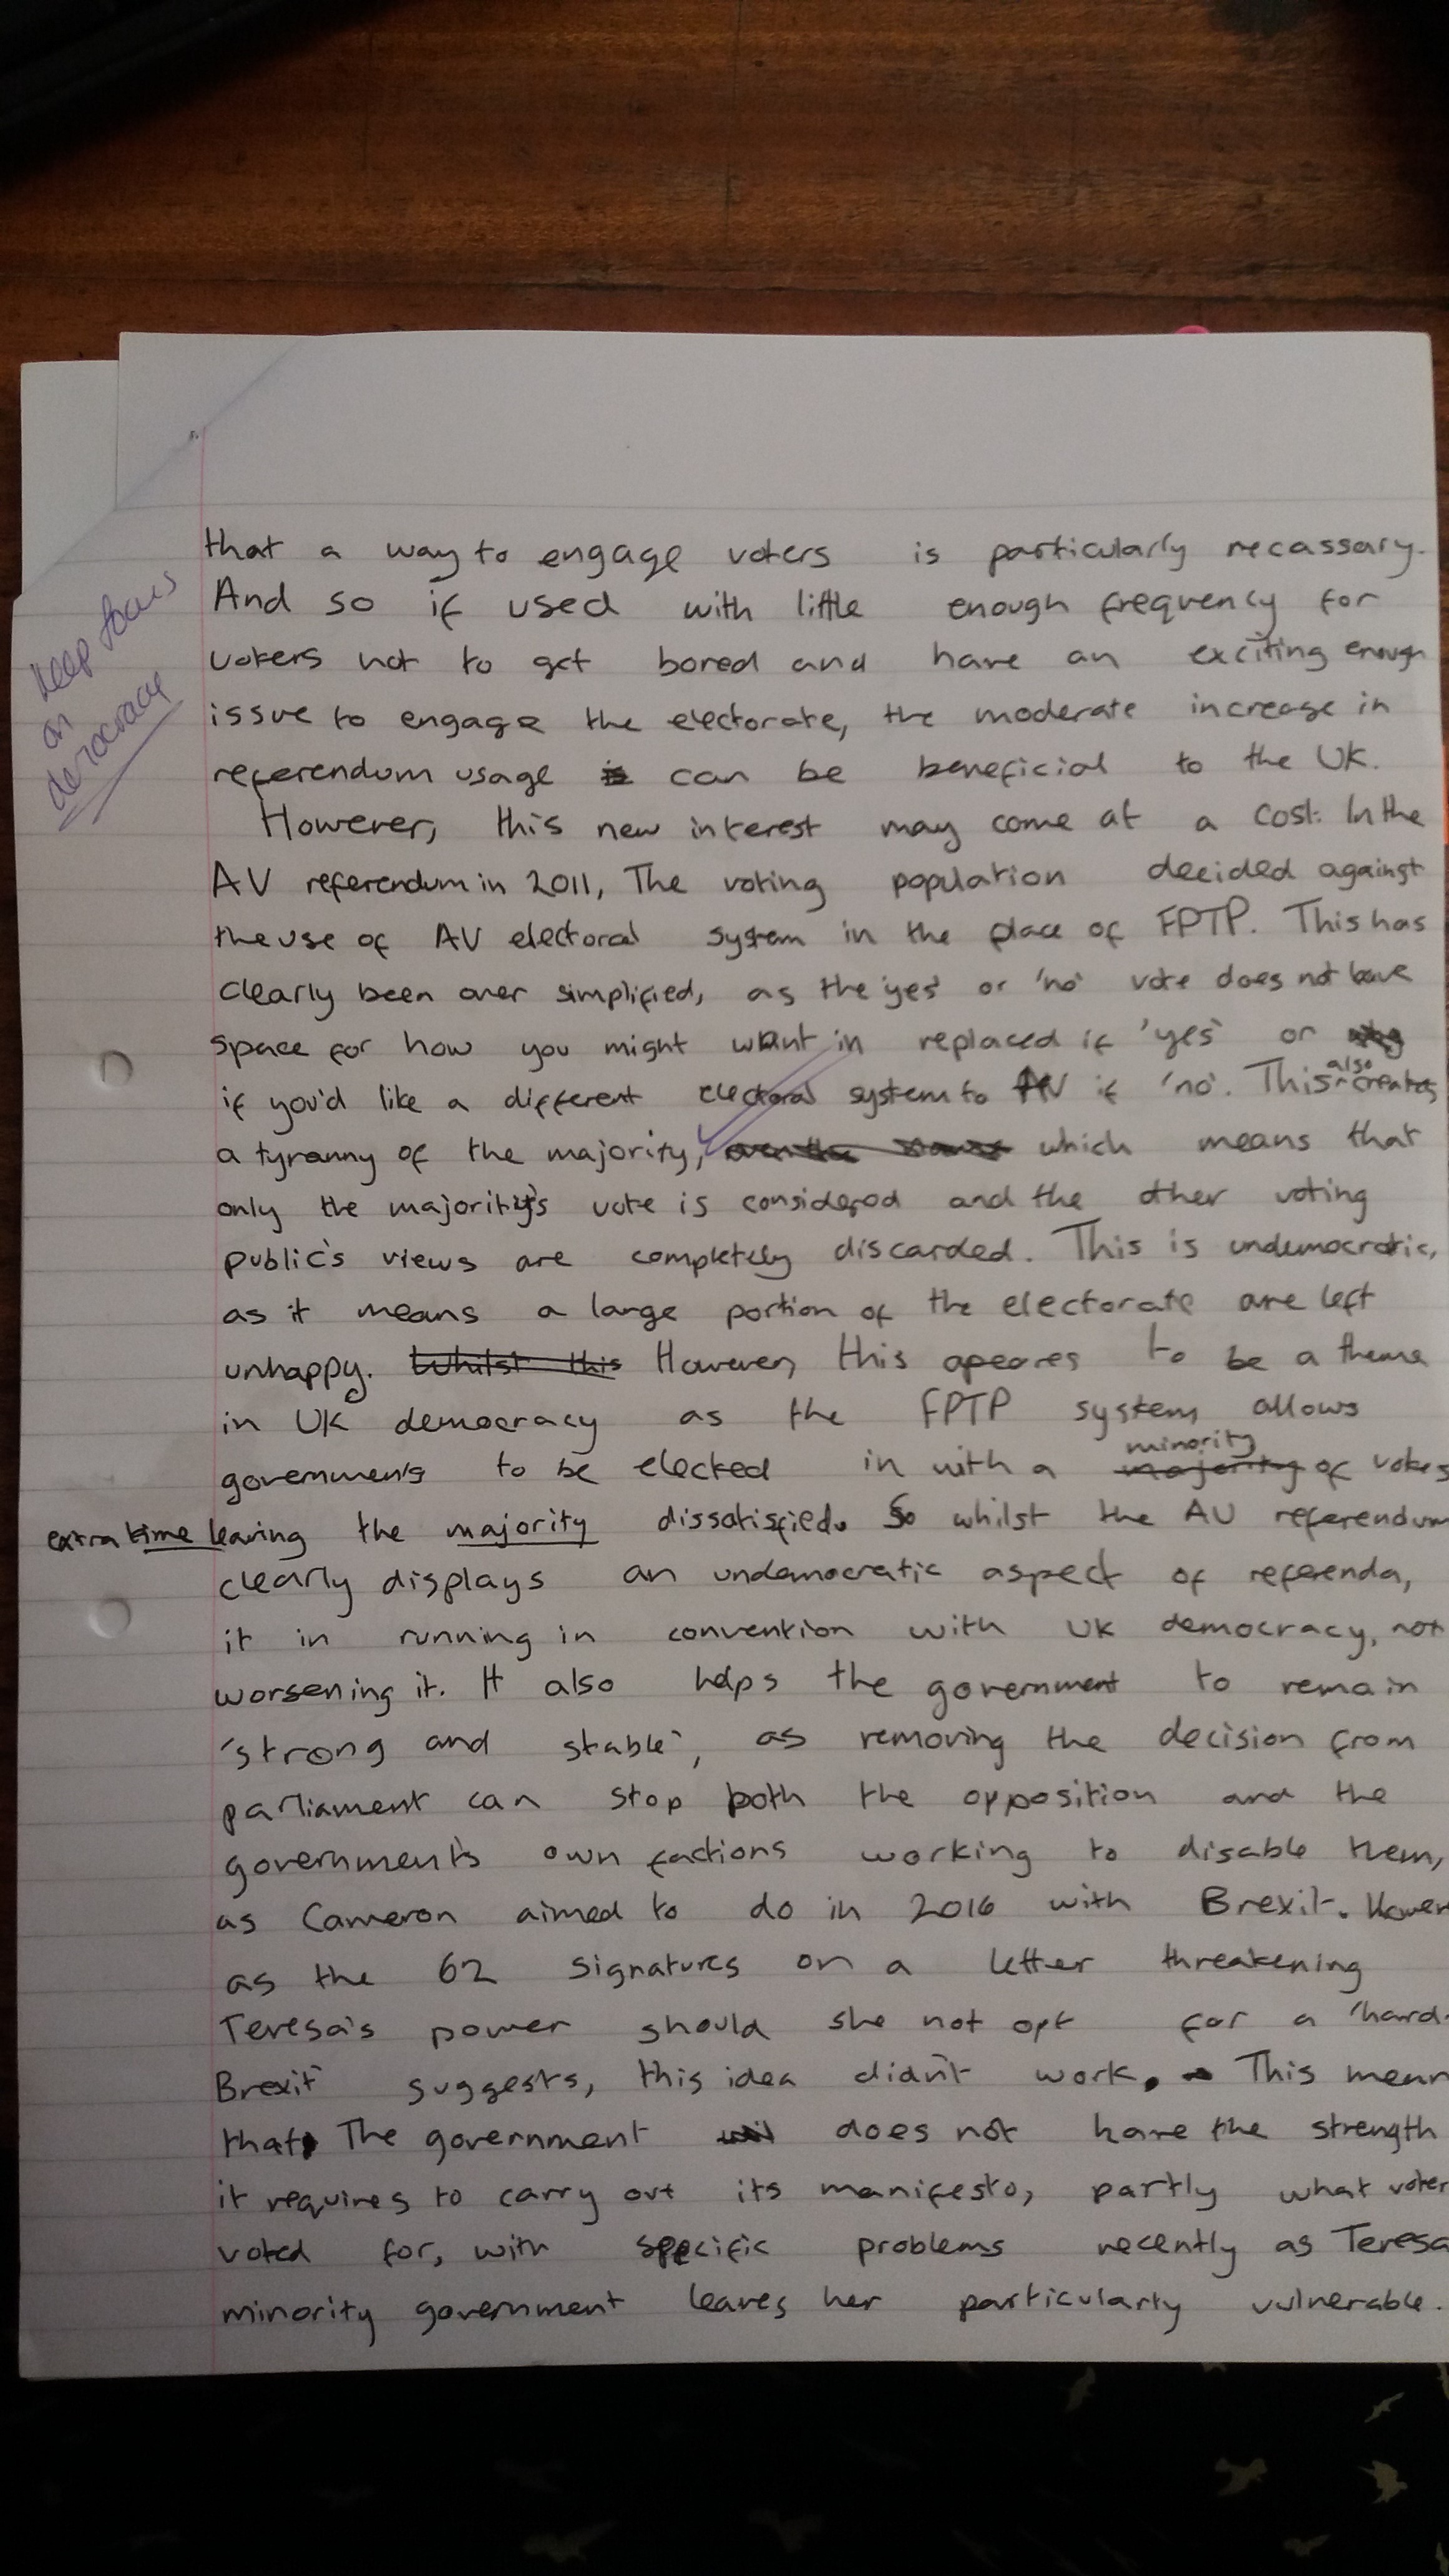 that a way to engage voters is particularly necassary.
And so if used with little enough frequency for
voters not to get bored and have an exciting enough
issue to engage the electorate, the moderate increase in
referendum usage is can be beneficial to the UK.
keep focus
on
democracy
However, this new interest may come at a cost. In the
AV referendum in 2011, The voting population decided against
the use of AV electoral system in the place of FPTP. This has
clearly been over simplified, as the 'yes' or 'no' vote does not leave
space for how you might want in replaced if 'yes' or
if you'd like a different electoral system to AV if 'no'. This also creates
a tyranny of the majority, which means that
only the majority's vote is considered and the other voting
public's views are completely discarded. This is undemocratic,
as it means a large portion of the electorate are left
unhappy. Whilst this However, this apeares to be a theme
in UK democracy as the FPTP system allows
government's to be elected in with a majority minority of votes
extra time leaving the majority dissatisfied. So whilst the AV referendum
clearly displays an undemocratic aspect of referenda,
it in running in convention with UK democracy, not
worsening it. It also helps the government to remain
'strong and stable', as removing the decision from
parliament can stop both the opposition and the
government's own factions working to disable them,
as Cameron aimed to do in 2016 with Brexit. Hower
as the 62 signatures on a letter threatening
Teresa's power should she not opt for a 'hard-
Brexit' suggests, this idea didn't work. This mean
that The government does not have the strength
it requires to carry out its manifesto, partly what voter
voted for, with specific problems recently as Teresa
minority government leaves her particularly vulnerable.